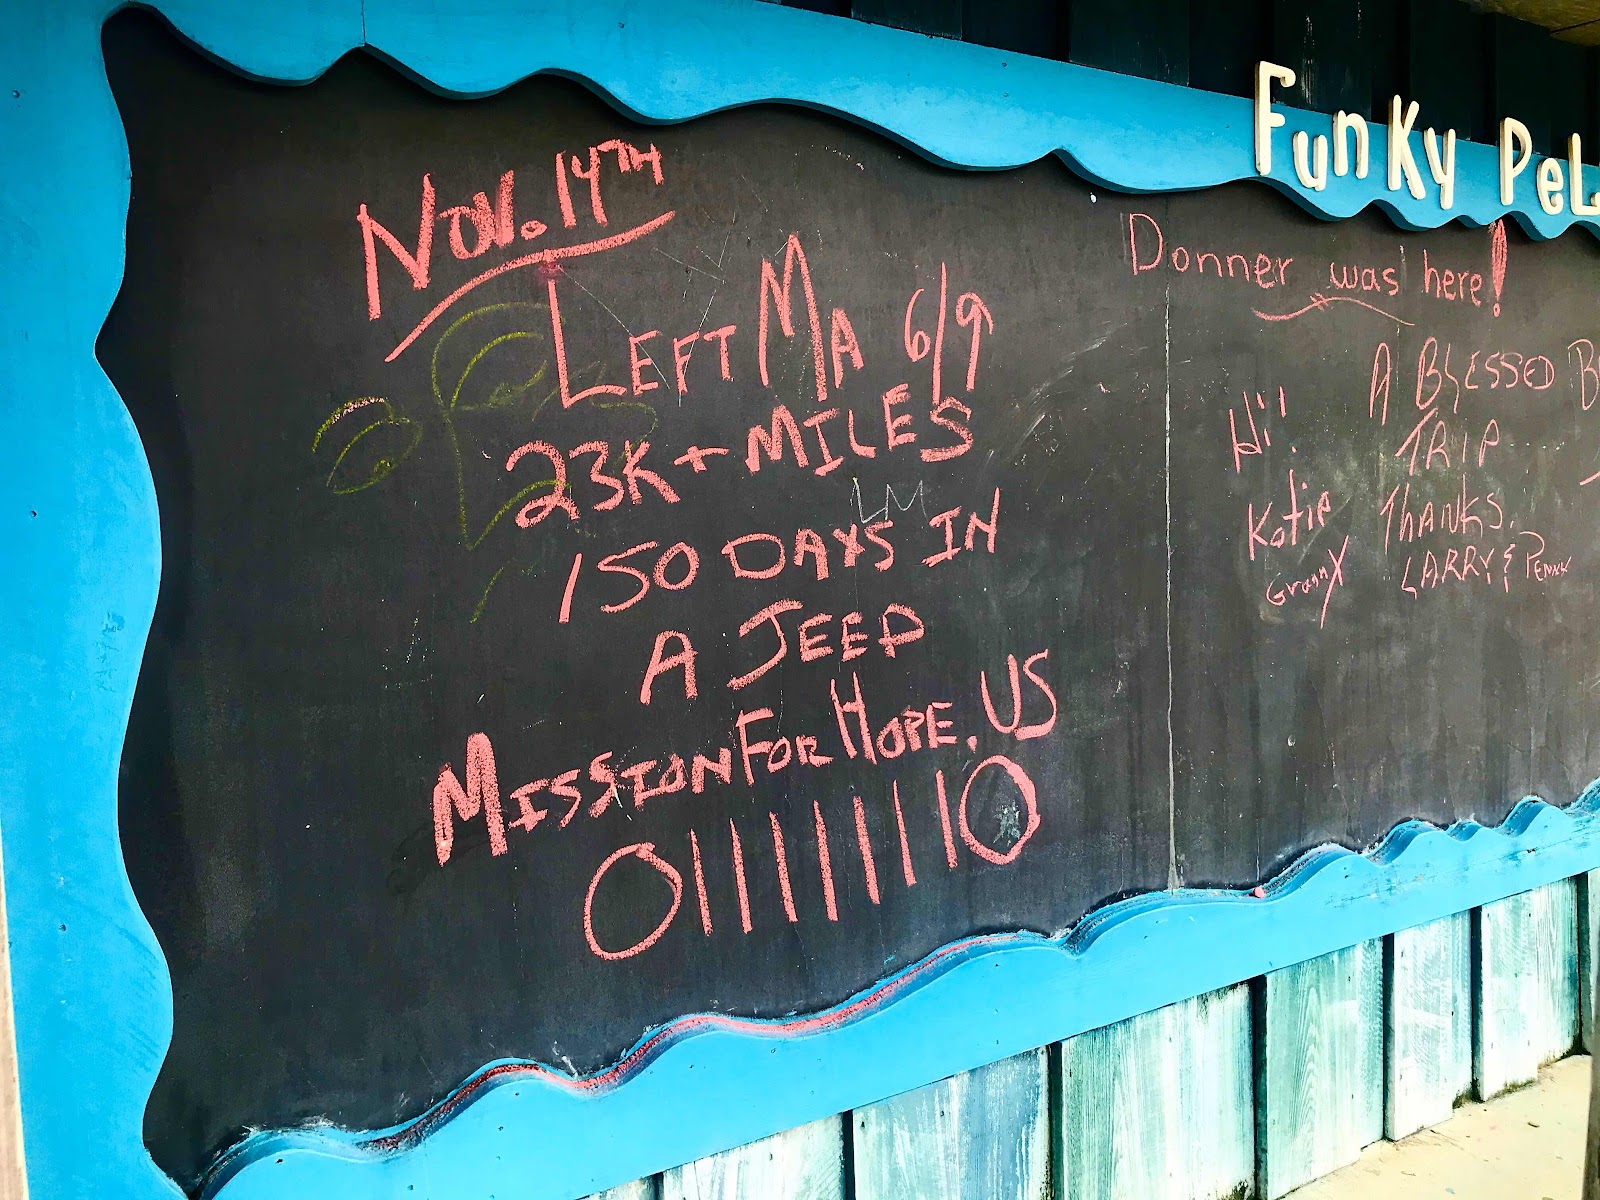 Nov. 14TH
LEFT MA 6/9
23K + MILES
150 DAYS IN
A JEEP
MISSIONFORHOPE.US
LM
FunKy PeL
Donner was here!
Hi!
Katie
Grann
A BLESSED
TRIP
THANKS.
LARRY & PENNY